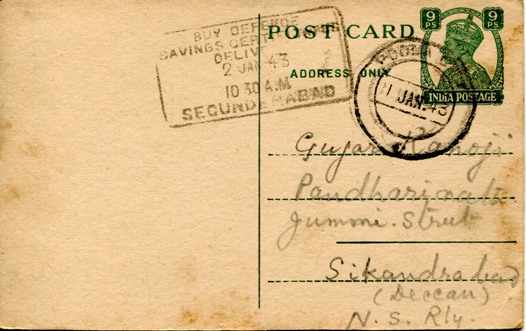 POST CARD
ADDRESS ONLY
9 PS 9 PS
INDIA POSTAGE
BUY DEFENCE
SAVINGS
DELIV
2 JAN 43
10 30 A.M.
SECUNDERABAD
POONA
1 JAN. 43
Gujar Kanoji
Pandharinath
Jummi. Street
Sikandrabad
(Deccan)
N. S. Rly.